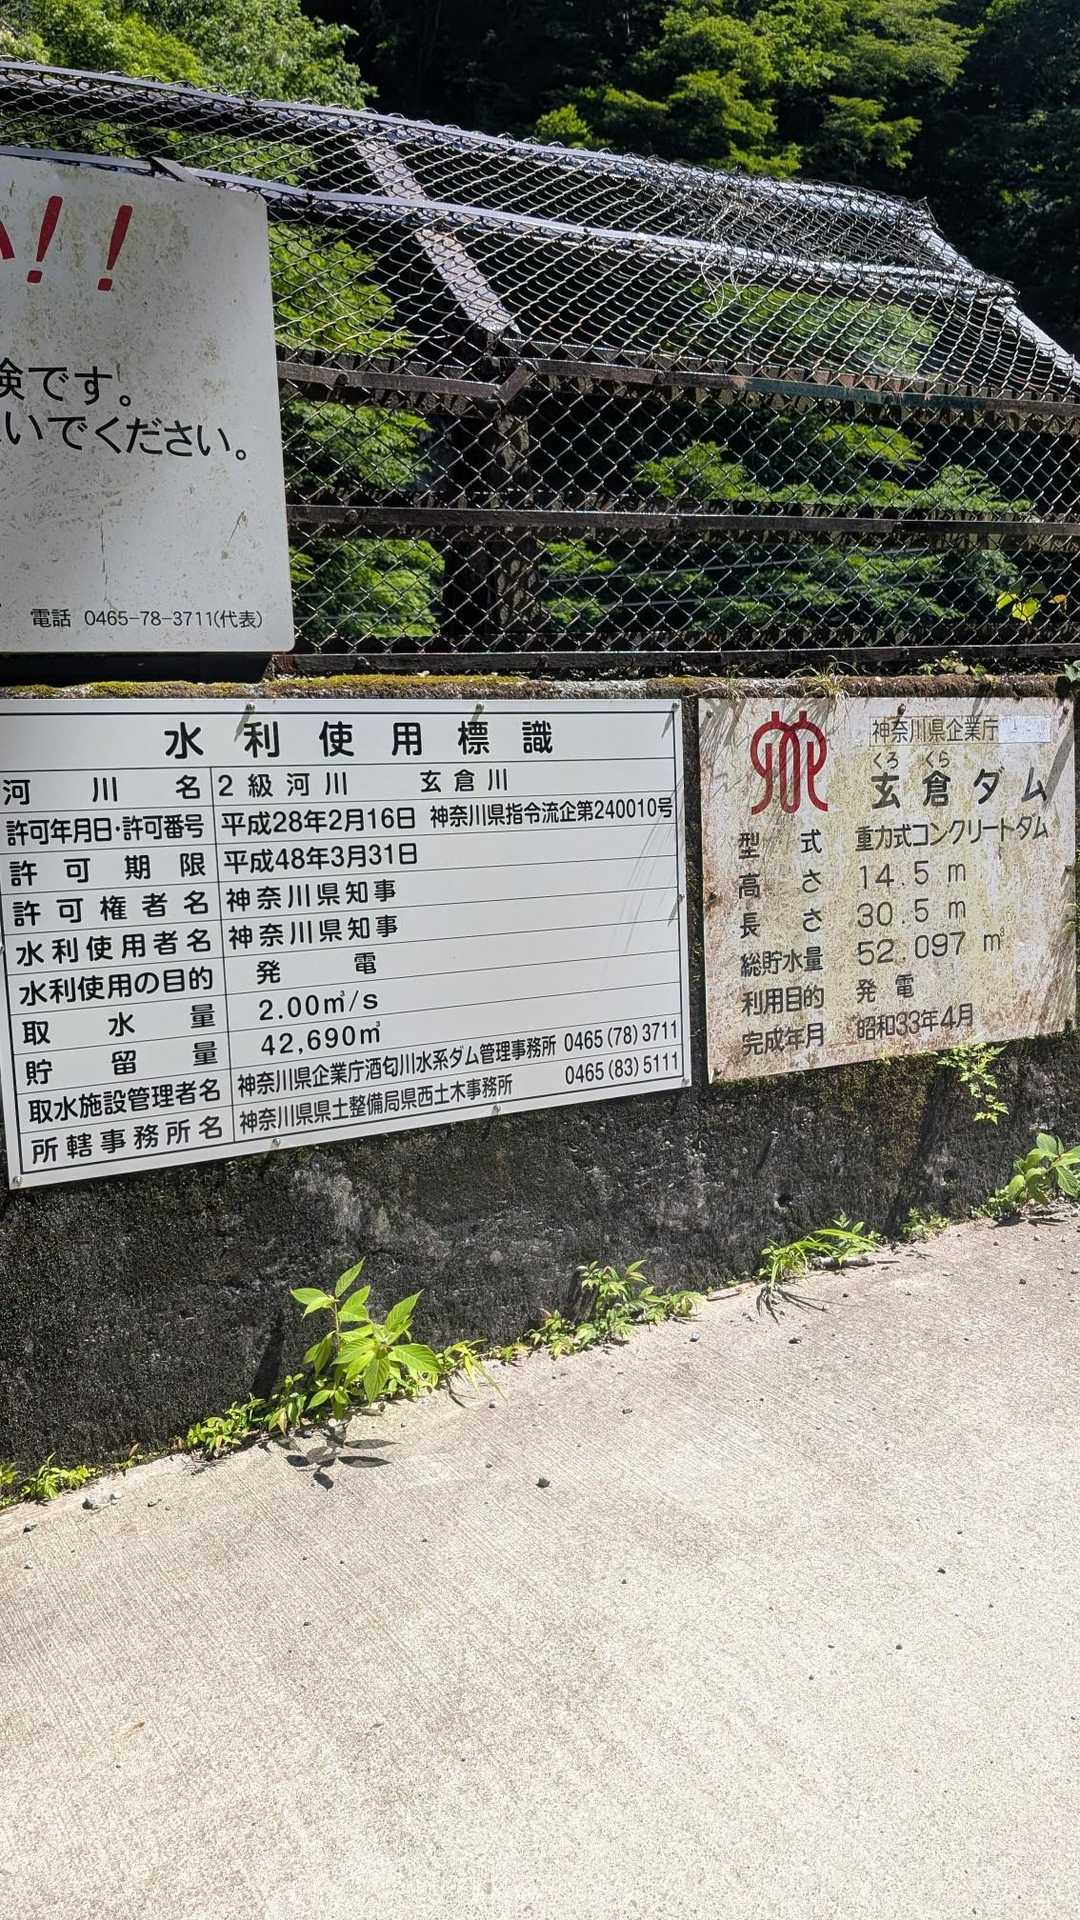 ！！
険です。
いでください。
電話 0465-78-3711(代表)
水利使用標識
河川名 2級河川 玄倉川
許可年月日・許可番号 平成28年2月16日 神奈川県指令流企第240010号
許可期限 平成48年3月31日
許可権者名 神奈川県知事
水利使用者名 神奈川県知事
水利使用の目的 発電
取水量 2.00㎥/s
貯留量 42,690㎥
取水施設管理者名 神奈川県企業庁酒匂川水系ダム管理事務所 0465(78)3711
所轄事務所名 神奈川県県土整備局県西土木事務所 0465(83)5111
神奈川県企業庁
くろくら
玄倉ダム
型式 重力式コンクリートダム
高さ 14.5 m
長さ 30.5 m
総貯水量 52.097 ㎥
利用目的 発電
完成年月 昭和33年4月